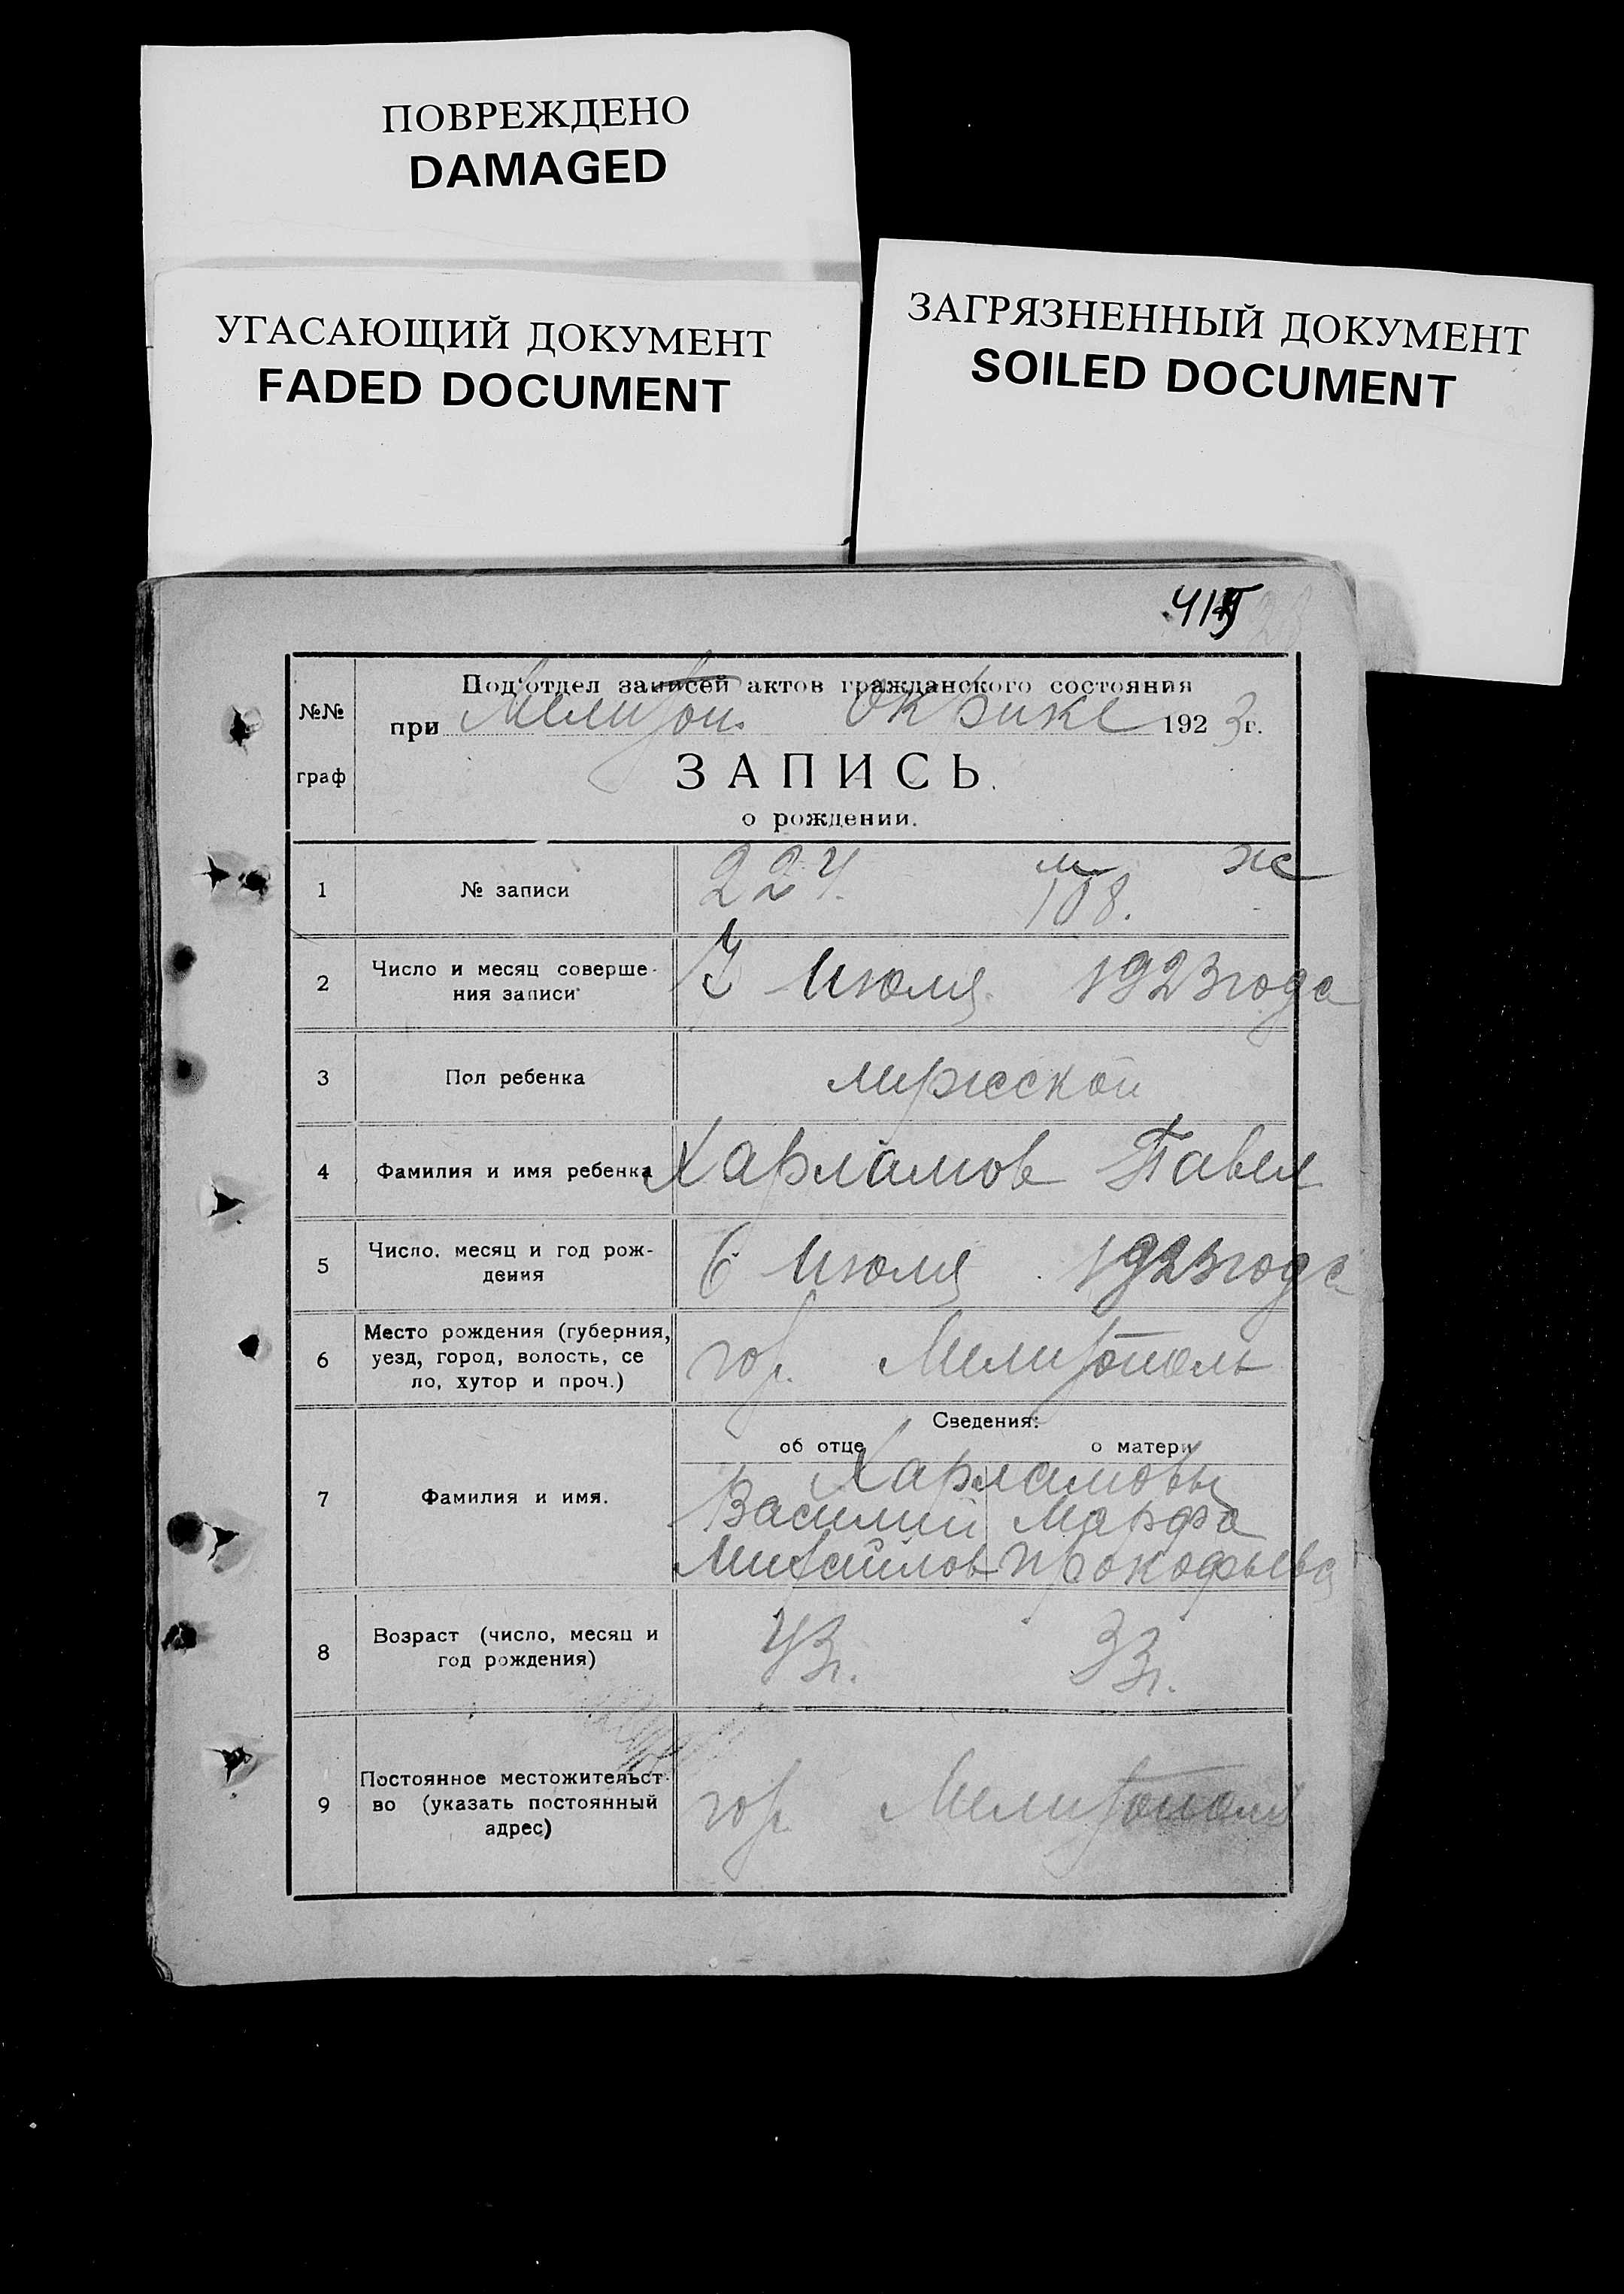 ПОВРЕЖДЕНО
DAMAGED
УГАСАЮЩИЙ ДОКУМЕНТ
FADED DOCUMENT
ЗАГРЯЗНЕННЫЙ ДОКУМЕНТ
SOILED DOCUMENT
№№ граф
Под'отдел записей актов гражданского состояния
при Мелитоп. 1923 г.
ЗАПИСЬ
о рождении.
1 № записи 224. м 108. ж
2 Число и месяц соверше-
ния записи Июля 1923 года
3 Пол ребенка мужской
4 Фамилия и имя ребенка Харламов Павел
5 Число, месяц и год рож-
дения 6 Июля 1923 года
6 Место рождения (губерния,
уезд, город, волость, се
ло, хутор и проч.) гор. Мелитополь
Сведения:
об отце о матери
7 Фамилия и имя. Харламовы
Василий Марфа
Михайлов Прокофьева
8 Возраст (число, месяц и
год рождения) 43г. 33г.
9 Постоянное местожительст-
во (указать постоянный
адрес) гор. Мелитополь